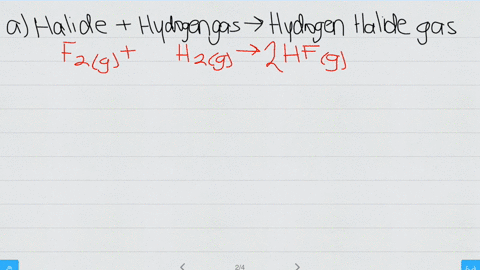 a) Halide + Hydrogen gas → Hydrogen Halide gas
F2(g) + H2(g) → 2HF(g)
2/4